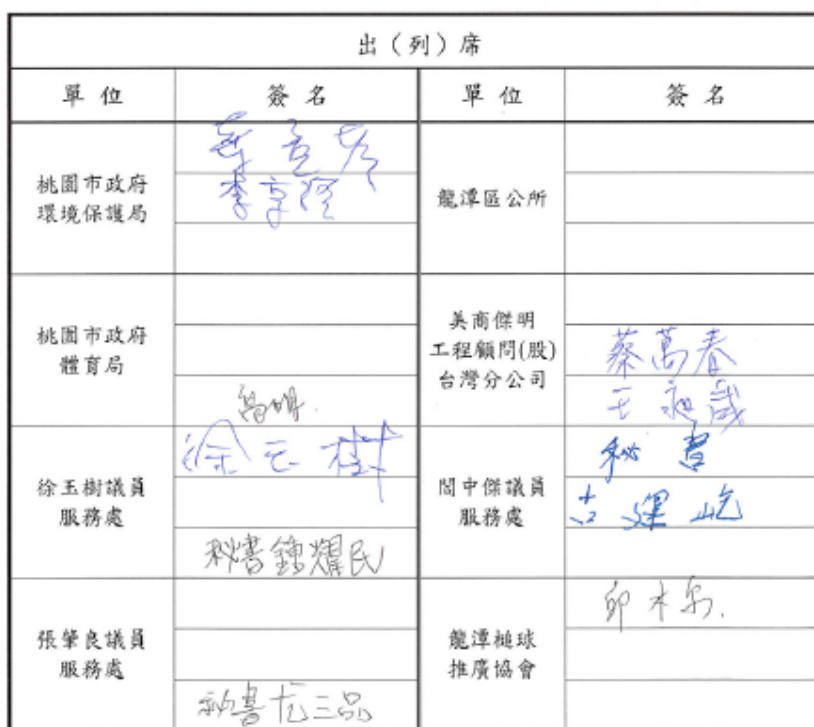 出（列）席
單位 簽名 單位 簽名
桃園市政府
環境保護局
李享隆
龍潭區公所
桃園市政府
體育局
美商傑明
工程顧問(股)
台灣分公司
蔡萬春
徐玉樹議員
服務處
徐玉樹
秘書鍾燿民
閻中傑議員
服務處
秘書
古運屹
張肇良議員
服務處
秘書
龍潭槌球
推廣協會